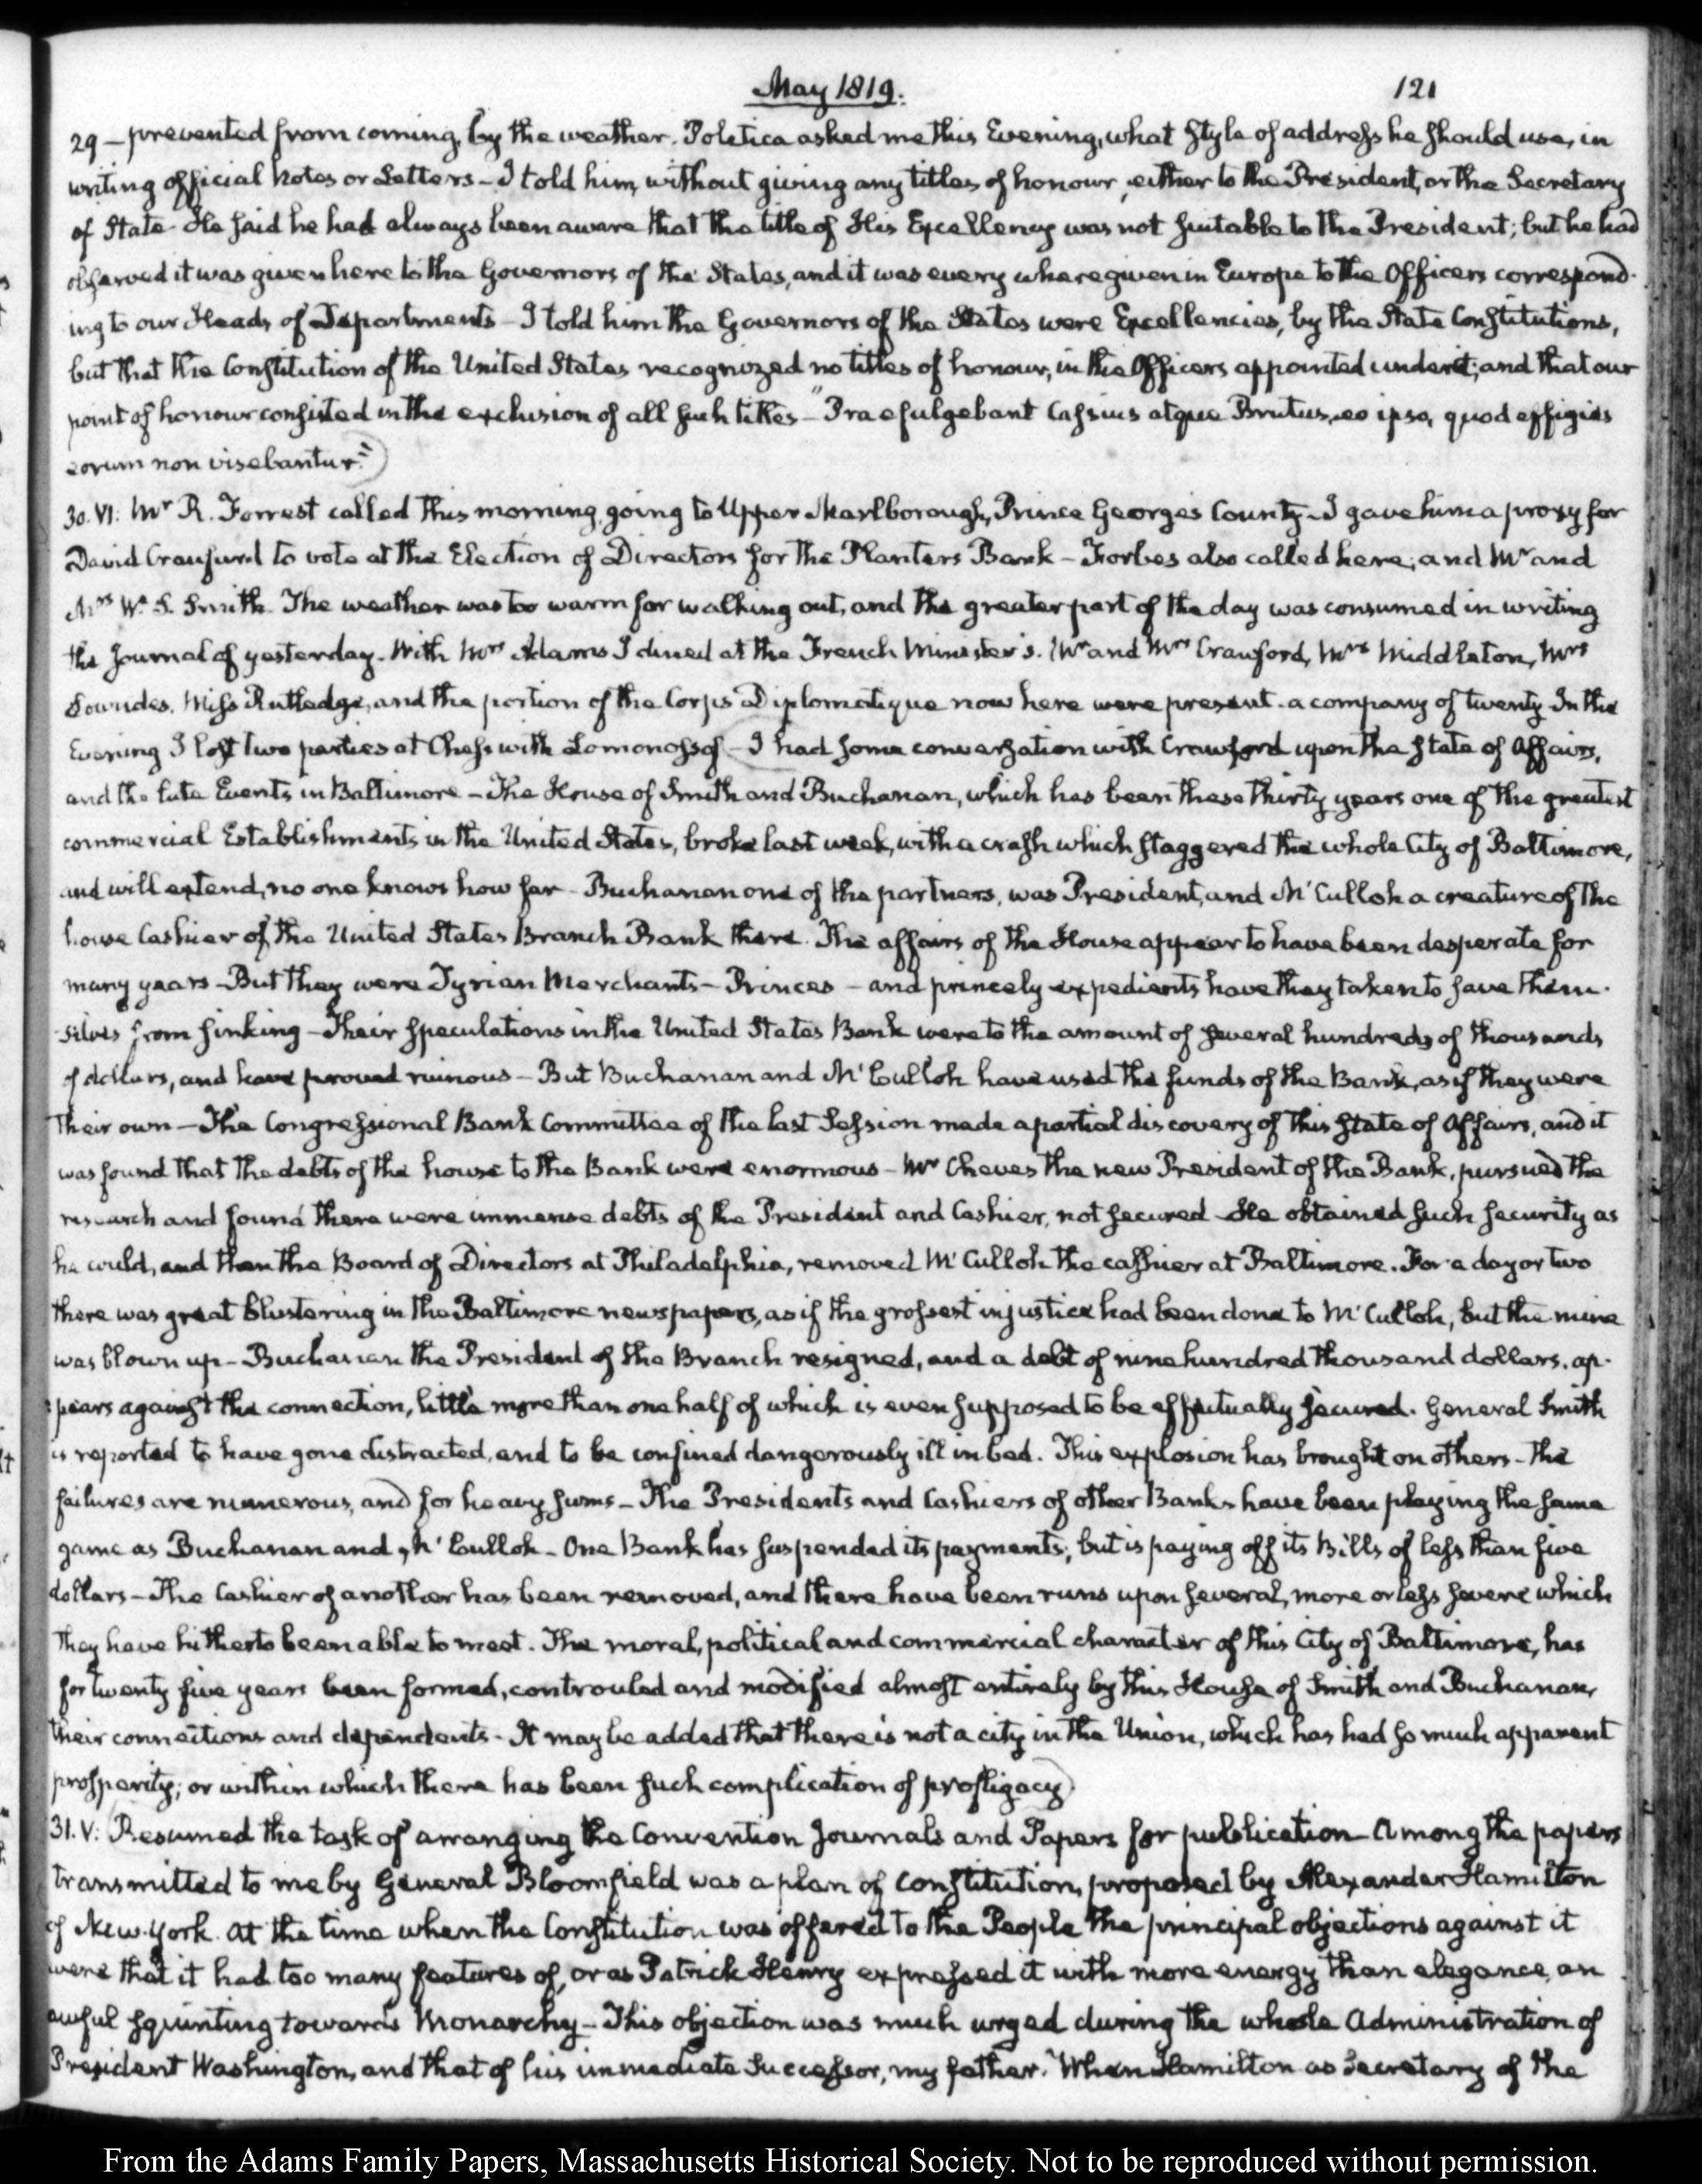 May 1819. 121
29 – prevented from coming, by the weather. Poletica asked me this Evening, what style of address he should use, in
writing official Notes or Letters – I told him, without giving any titles of honour, either to the President, or the Secretary
of State. He said he had always been aware that the title of His Excellency was not suitable to the President; but he had
observed it was given here to the Governors of the States, and it was every where given in Europe to the Officers correspond-
ing to our Heads of Departments – I told him the Governors of the States were Excellencies, by the State Constitutions,
but that the Constitution of the United States recognized no titles of honour, in the Officers appointed under it; and that our
point of honour consisted in the exclusion of all such titles – "Praefulgebant Cassius atque Brutus, eo ipso, quod effigies
eorum non visebantur."
30. VI: Mr R. Forrest called this morning, going to Upper Marlborough, Prince Georges County – I gave him a proxy for
David Craufurd to vote at the Election of Directors for the Planters Bank – Forbes also called here, and Mr and
Mrs W. S. Smith. The weather was too warm for walking out, and the greater part of the day was consumed in writing
the Journal of yesterday. With Mrs Adams I dined at the French Minister's. Mr and Mrs Crawford, Mrs Middleton, Mrs
Lowndes, Miss Rutledge, and the portion of the Corps Diplomatique now here were present. a company of twenty. In the
Evening I lost two parties at Chess with Lomonossof – I had some conversation with Crawford upon the state of Affairs,
and the late Events in Baltimore – The House of Smith and Buchanan, which has been these thirty years one of the greatest
commercial Establishments in the United States, broke last week, with a crash which staggered the whole City of Baltimore,
and will extend, no one knows how far – Buchanan one of the partners, was President, and McCulloh a creature of the
house Cashier of the United States Branch Bank there. The affairs of the House appear to have been desperate for
many years – But they were Tyrian Merchants – Princes – and princely expedients have they taken to save them-
selves from sinking – Their speculations in the United States Bank were to the amount of several hundreds of thousands
of dollars, and have proved ruinous – But Buchanan and McCulloh have used the funds of the Bank, as if they were
their own – The Congressional Bank Committee of the last Session made a partial discovery of this state of Affairs, and it
was found that the debts of the house to the Bank were enormous – Mr Cheves the new President of the Bank, pursued the
research and found there were immense debts of the President and Cashier, not secured – He obtained such security as
he could, and then the Board of Directors at Philadelphia, removed McCulloh the cashier at Baltimore. For a day or two
there was great blustering in the Baltimore newspapers, as if the grossest injustice had been done to McCulloh, but the mine
was blown up – Buchanan the President of the Branch resigned, and a debt of nine hundred thousand dollars, ap-
pears against the connection, little more than one half of which is even supposed to be effectually secured. General Smith
is reported to have gone distracted, and to be confined dangerously ill in bed. This explosion has brought on others – the
failures are numerous, and for heavy sums – The Presidents and Cashiers of other Banks have been playing the same
game as Buchanan and McCulloh – One Bank has suspended its payments; but is paying off its Bills of less than five
dollars – The Cashier of another has been removed, and there have been runs upon several, more or less severe which
they have hitherto been able to meet. The moral, political and commercial character of this City of Baltimore, has
for twenty five years been formed, controuled and modified almost entirely by this House of Smith and Buchanan,
their connections and dependents – It may be added that there is not a city in the Union, which has had so much apparent
prosperity; or within which there has been such complication of profligacy.
31. V: Resumed the task of arranging the Convention Journals and Papers for publication – Among the papers
transmitted to me by General Bloomfield was a plan of Constitution, proposed by Alexander Hamilton
of New-York. At the time when the Constitution was offered to the People the principal objections against it
were that it had too many features of, or as Patrick Henry expressed it with more energy than elegance, an
awful squinting towards Monarchy – This objection was much urged during the whole Administration of
President Washington, and that of his immediate Successor, my father. When Hamilton as Secretary of the
From the Adams Family Papers, Massachusetts Historical Society. Not to be reproduced without permission.